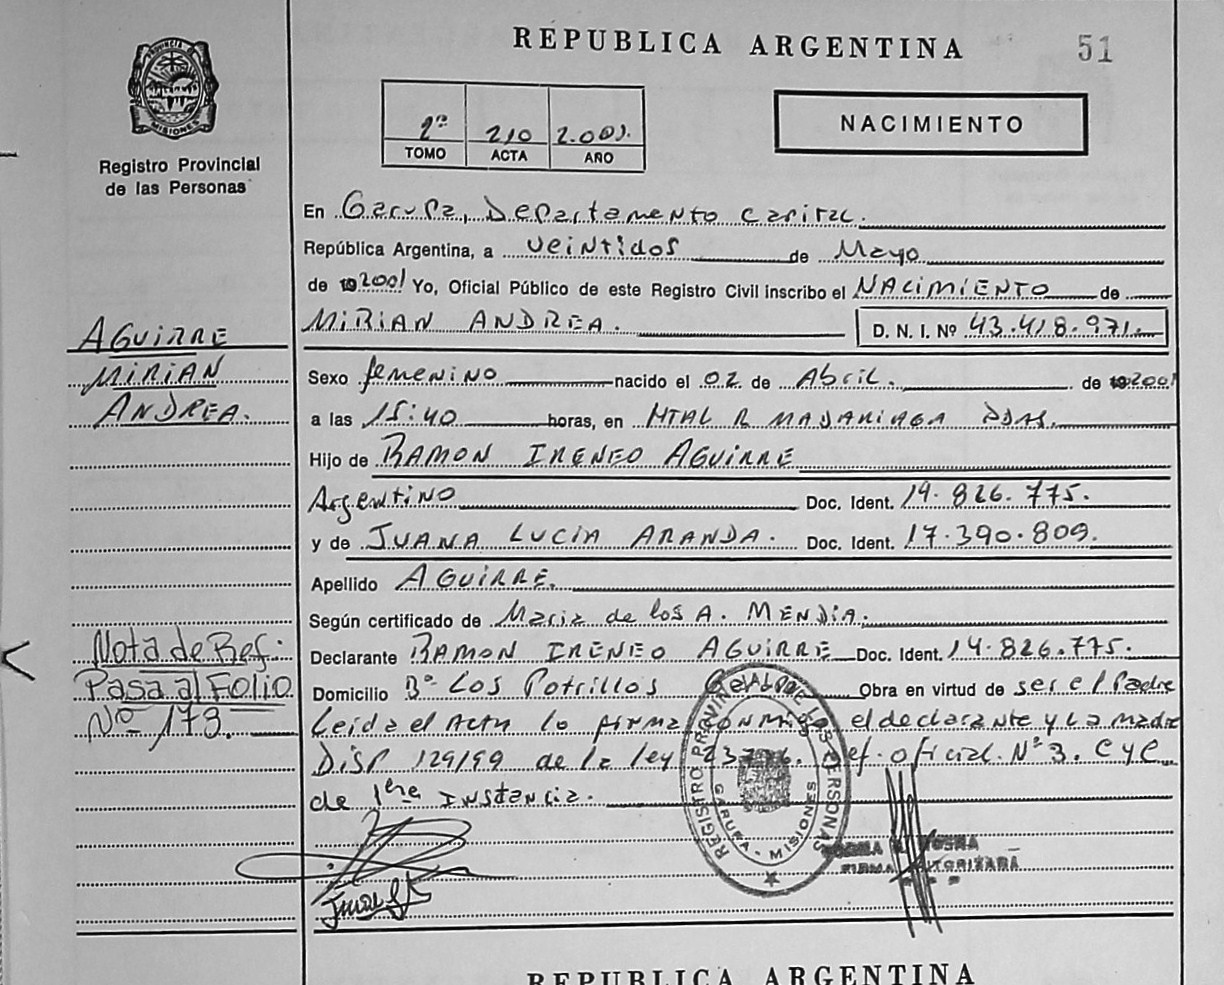 REPUBLICA ARGENTINA
51
PROVINCIA DE
MISIONES
Registro Provincial
de las Personas
2º 210 2.001.
TOMO ACTA AÑO
NACIMIENTO
En Garupa, Departamento Capital.
República Argentina, a veintidos de Mayo
de 19 2001 Yo, Oficial Público de este Registro Civil inscribo el NACIMIENTO de
MIRIAN ANDREA. D. N. I. Nº 43.418.971.
AGUIRRE
MIRIAN
ANDREA.
Sexo femenino nacido el 02 de Abril. de 19 2001
a las 15:40 horas, en HTAL R MADARIAGA PDAS.
Hijo de RAMON IRENEO AGUIRRE
Argentino Doc. Ident. 14.826.775.
y de JUANA LUCIA ARANDA. Doc. Ident. 17.390.809.
Apellido AGUIRRE.
Según certificado de Maria de los A. MENDIA.
Declarante RAMON IRENEO AGUIRRE Doc. Ident. 14.826.775.
Domicilio Bº LOS Potrillos Obra en virtud de ser el Padre
Leida el Acta lo firma conmigo el declarante y La madre
DISP 129/99 de la ley Def. Oficial. Nº 3. CyC
de 1era INSTANCIA.
Nota de Ref:
Pasa al Folio
Nº 173.
REGISTRO PROVINCIAL DE LAS PERSONAS
GARUPA - MISIONES
FIRMA AUTORIZADA
REPUBLICA ARGENTINA